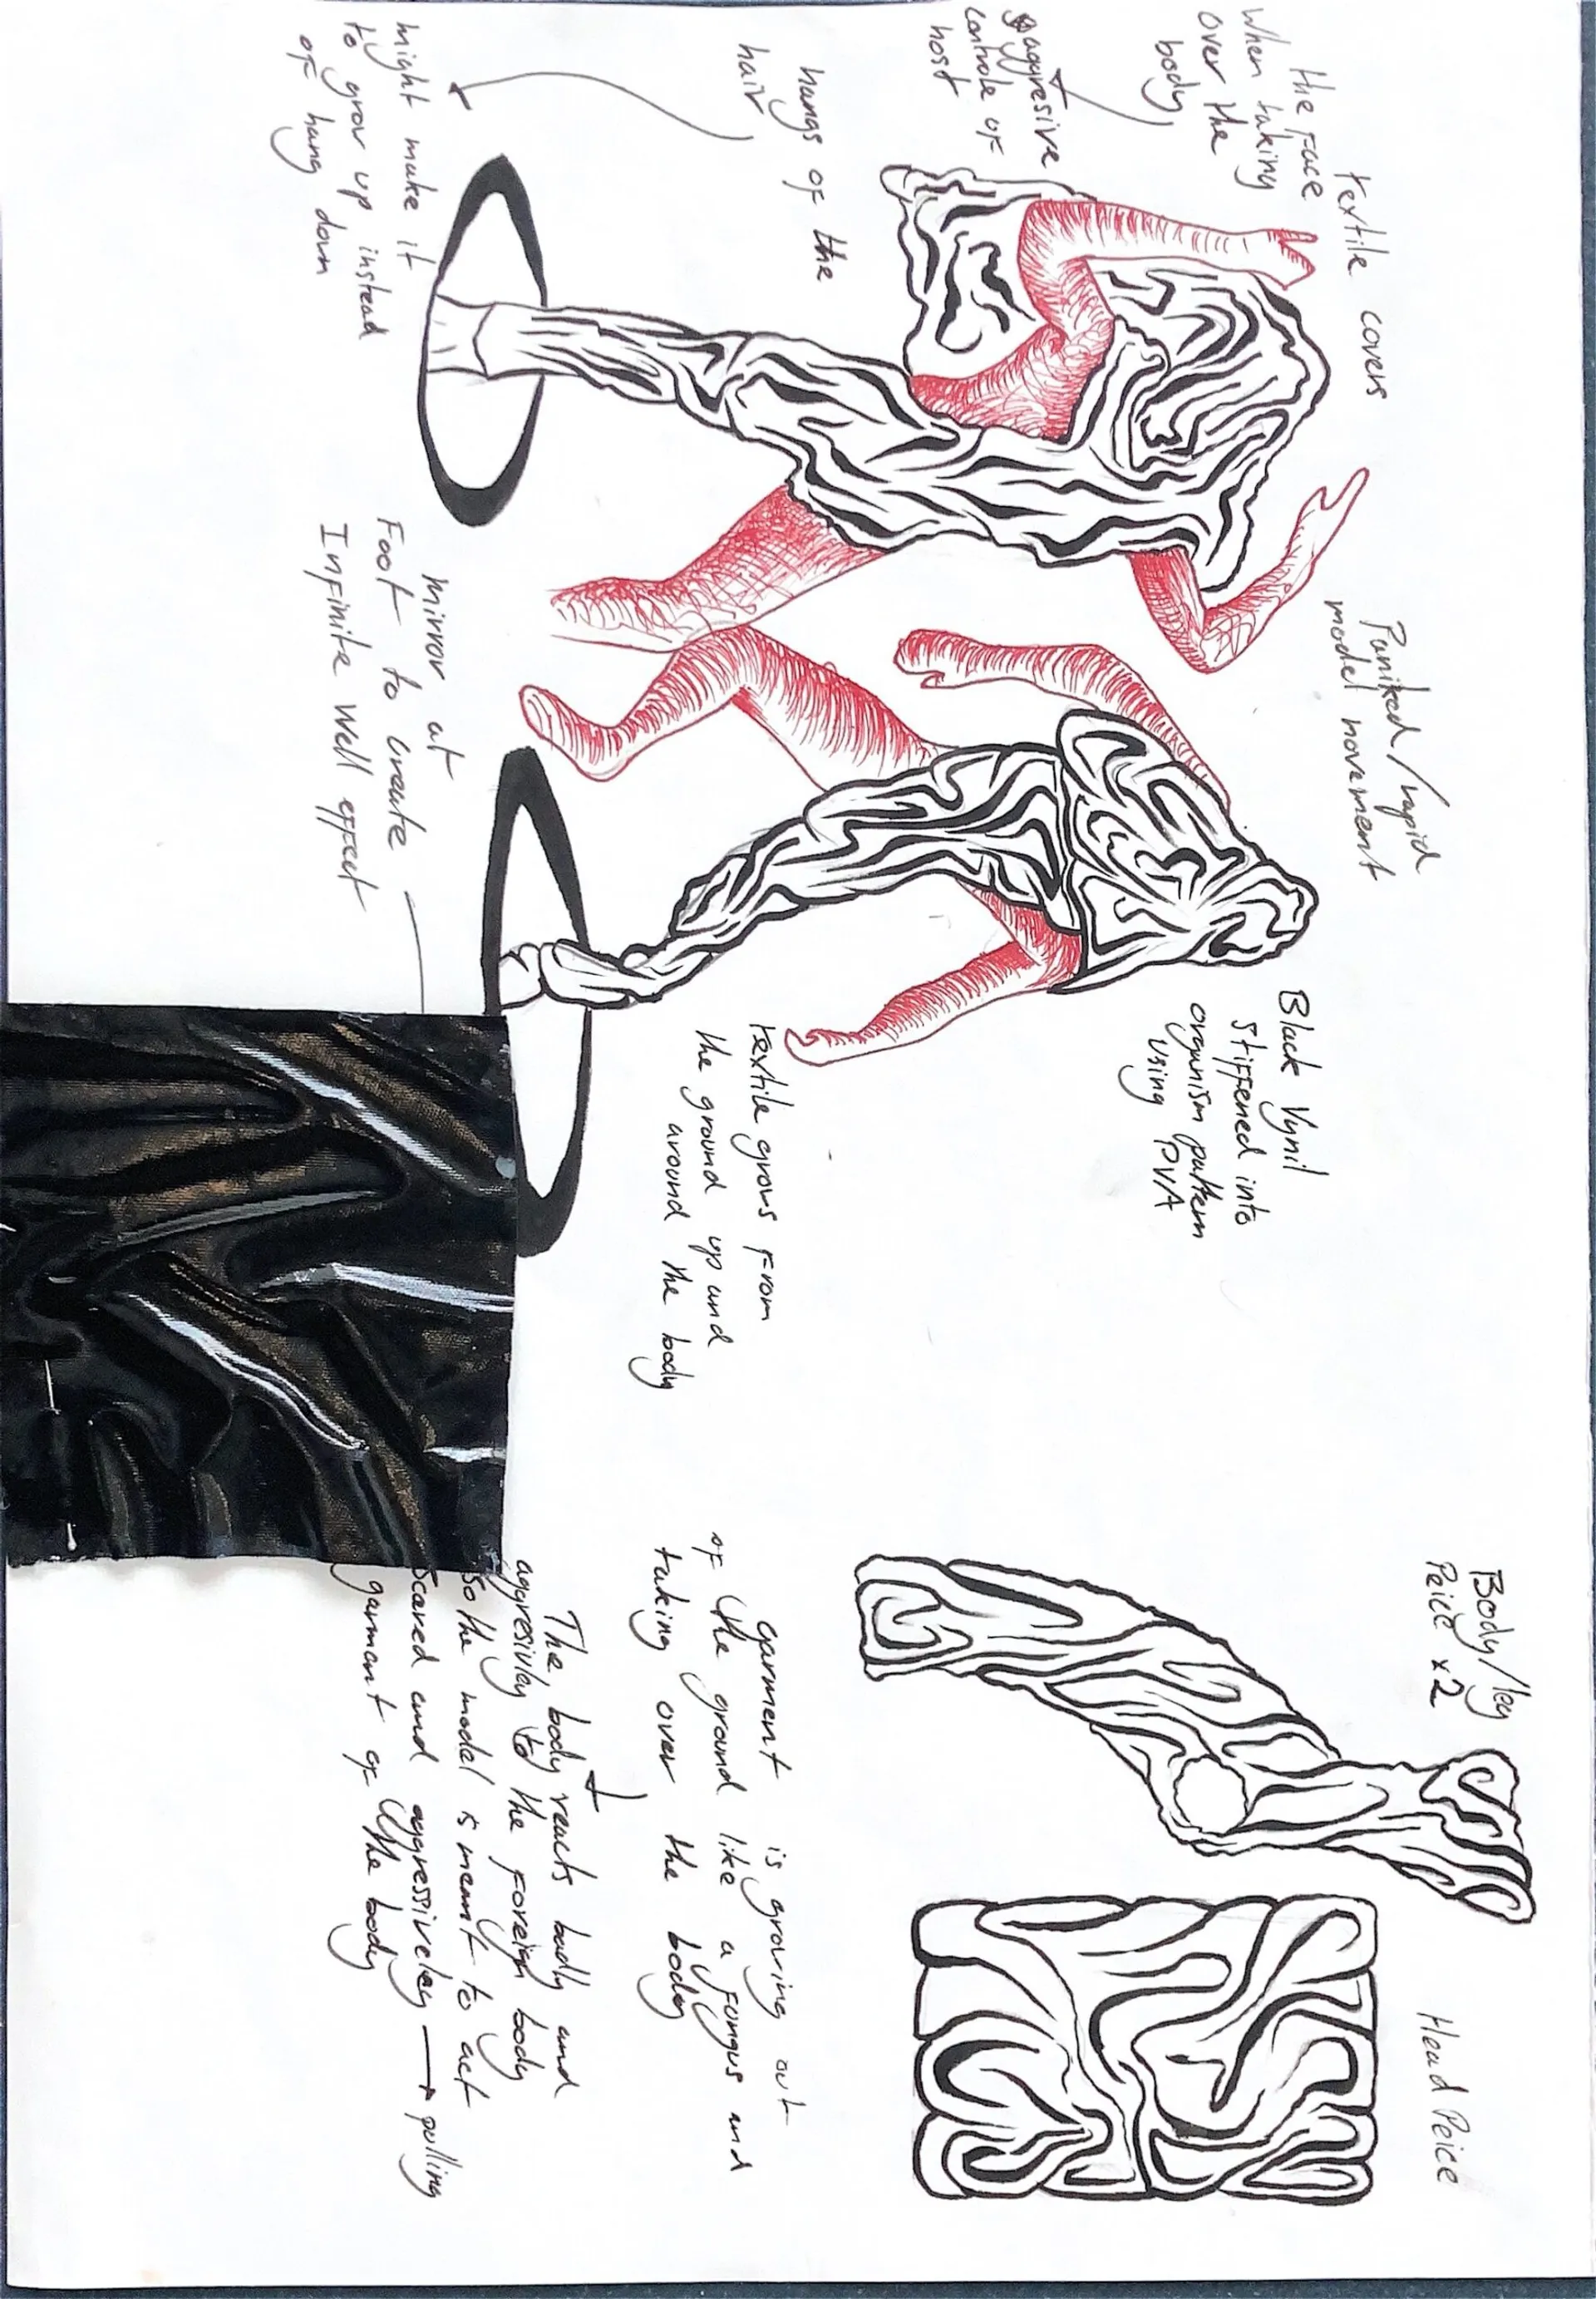 textile covers
the face
when taking
over the
body,
aggresive
controle of
host
hangs of the
hair
might make it
to grow up instead
of hang down
Paniked/rapid
model movement
mirror at
Foot to create
Infinite well effect
Black Vynil
stiffened into
organism pattern
using PVA
textile grows from
the ground up and
around the body
Body/leg
Peice x2
Head Peice
garment is growing out
of the ground like a fungus and
taking over the body
The body reacts badly and
aggresivley to the foreign body
so the model is meant to act
scared and aggressiveley → pulling
garment of the body